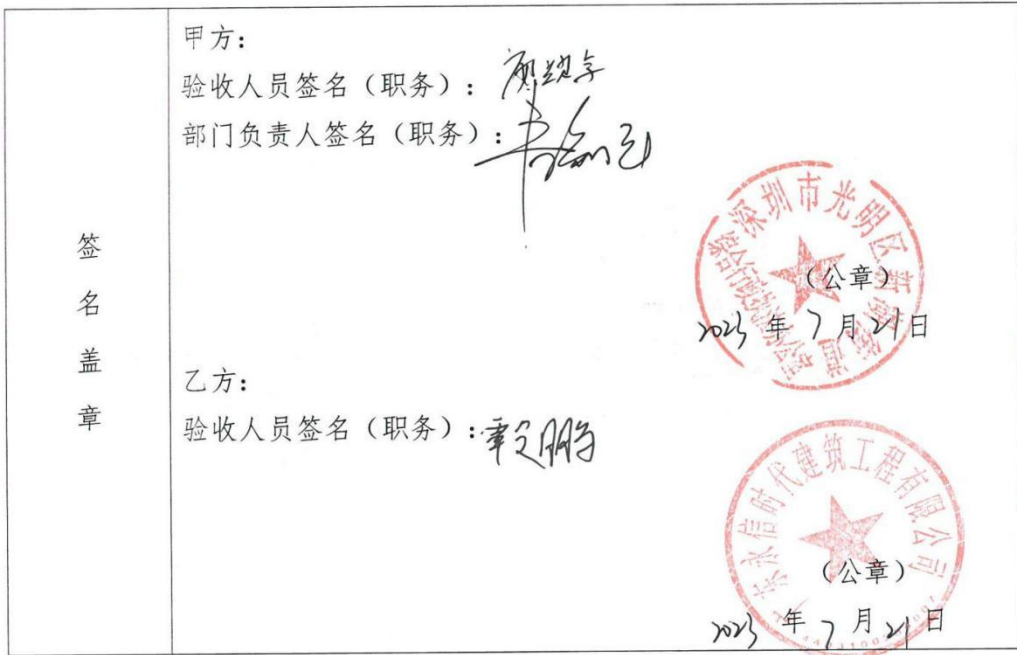 签名盖章
甲方：
验收人员签名（职务）：
部门负责人签名（职务）：
深圳市光明区新湖街道
综合行政执法办公室
（公章）
2023 年 7 月 21 日
乙方：
验收人员签名（职务）：覃定鹏
东永信时代建筑工程有限公司
（公章）
2023 年 7 月 21 日